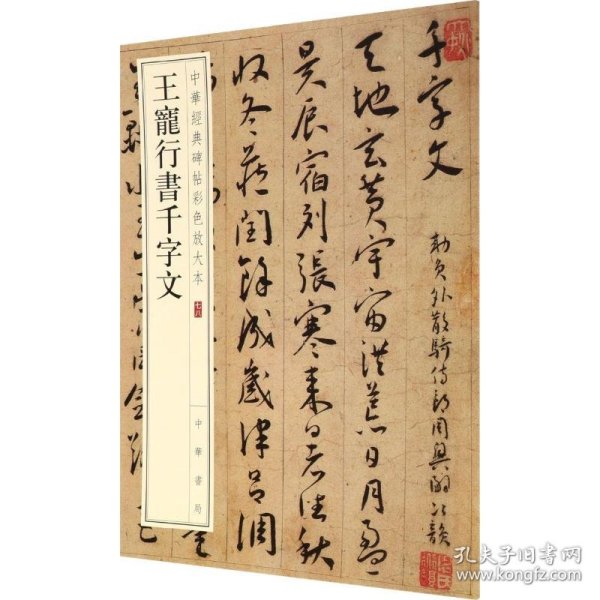 千字文
勅員外散騎侍郎周興嗣次韻
天地玄黄宇宙洪荒日月盈
昃辰宿列張寒来暑往秋
收冬蔵閏餘成歲律呂調
中華經典碑帖彩色放大本 七八
中華書局
王寵行書千字文
孔夫子旧书网
www.kongfz.com